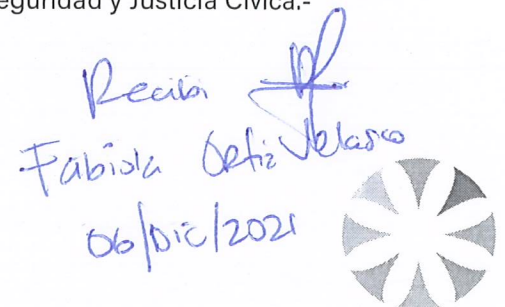 eguridad y Justicia Cívica.-
Recibi
Fabiola Ortiz Velasco
06/Dic/2021